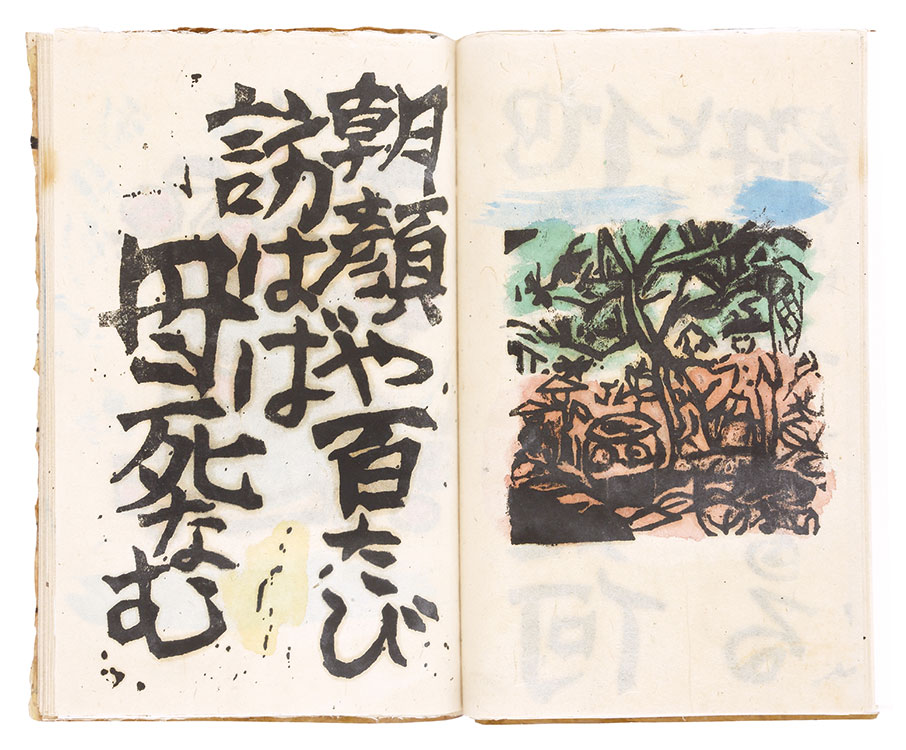 朝顔や百たび
訪はば
母死なむ